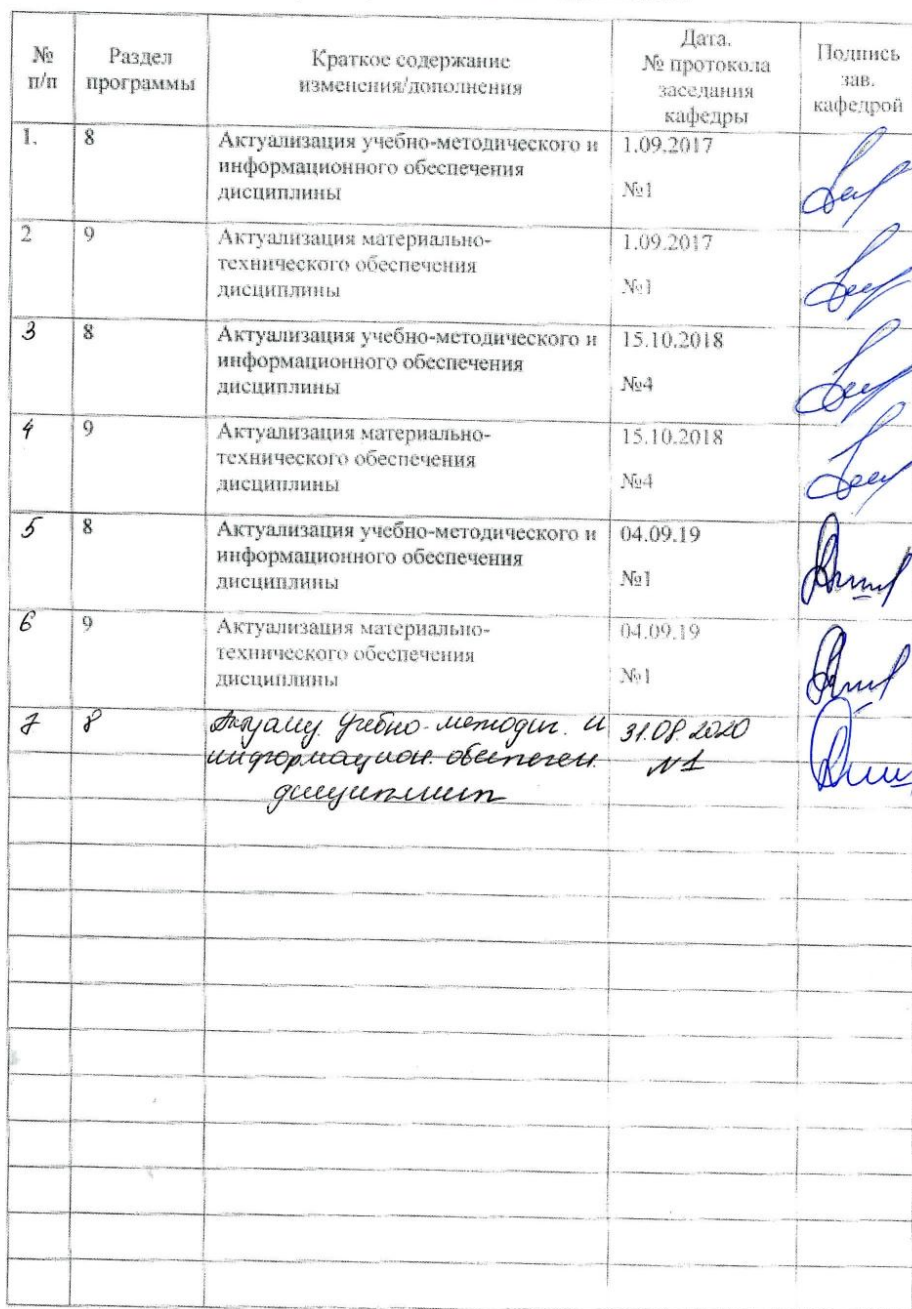 № п/п
Раздел программы
Краткое содержание изменения/дополнения
Дата. № протокола заседания кафедры
Подпись зав. кафедрой
1.
8
Актуализация учебно-методического и
информационного обеспечения
дисциплины
1.09.2017
№1
2
9
Актуализация материально-
технического обеспечения
дисциплины
1.09.2017
№1
3
8
Актуализация учебно-методического и
информационного обеспечения
дисциплины
15.10.2018
№4
4
9
Актуализация материально-
технического обеспечения
дисциплины
15.10.2018
№4
5
8
Актуализация учебно-методического и
информационного обеспечения
дисциплины
04.09.19
№1
6
9
Актуализация материально-
технического обеспечения
дисциплины
04.09.19
№1
7
8
Актуализ. учебно-методич. и
информацион. обеспечен.
дисциплин
31.08.2020
№1